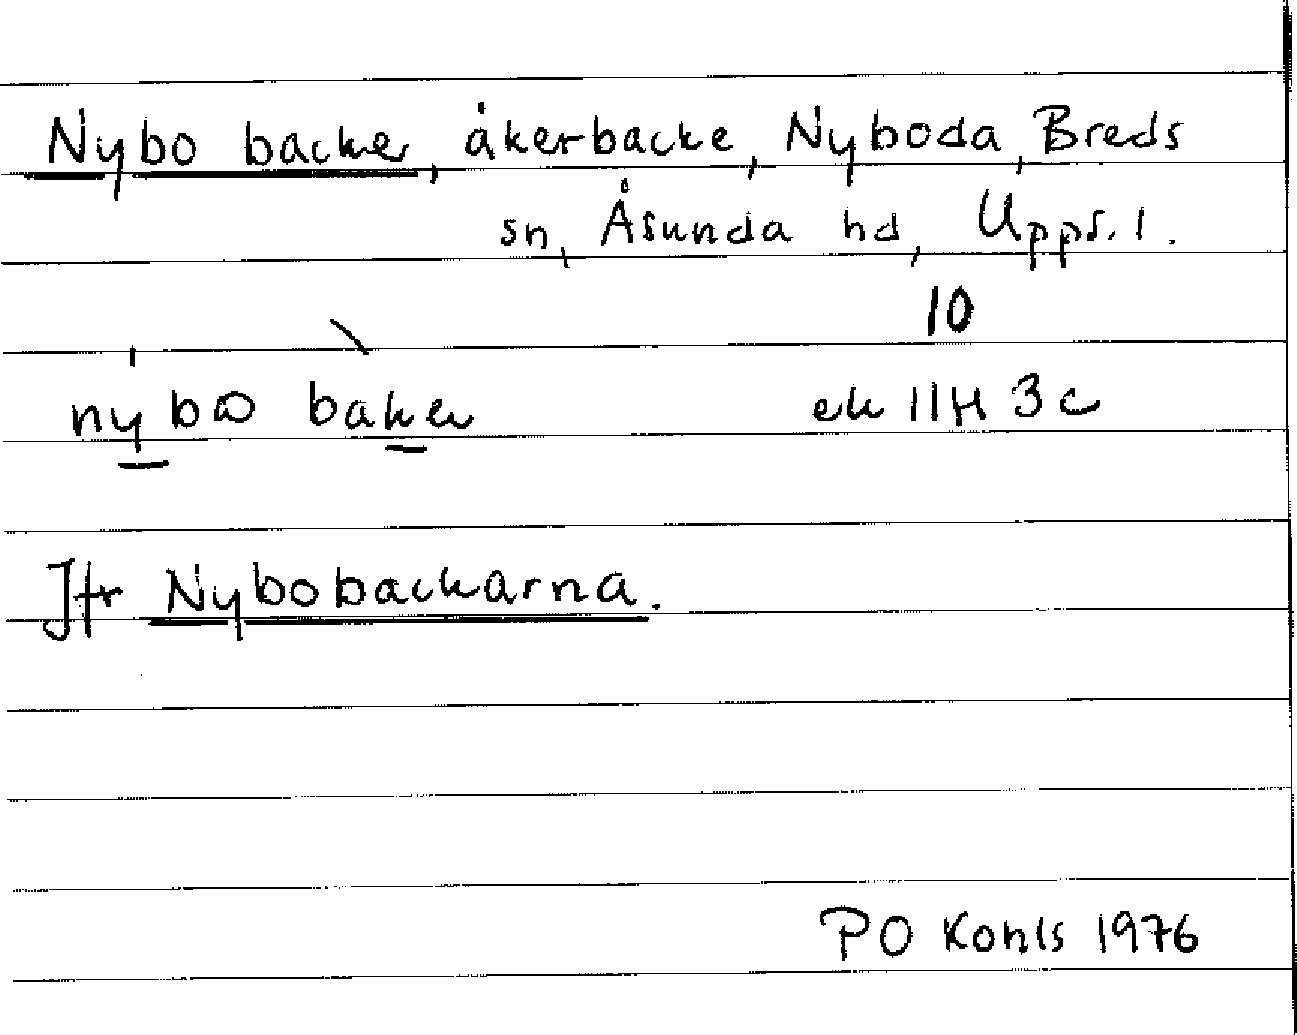 Nybo backer, åkerbacke, Nyboda, Breds
sn, Åsunda hd, Upps. l.
10
nybo baker
ek 11H 3c
Jfr Nybobackarna.
PO Kohls 1976